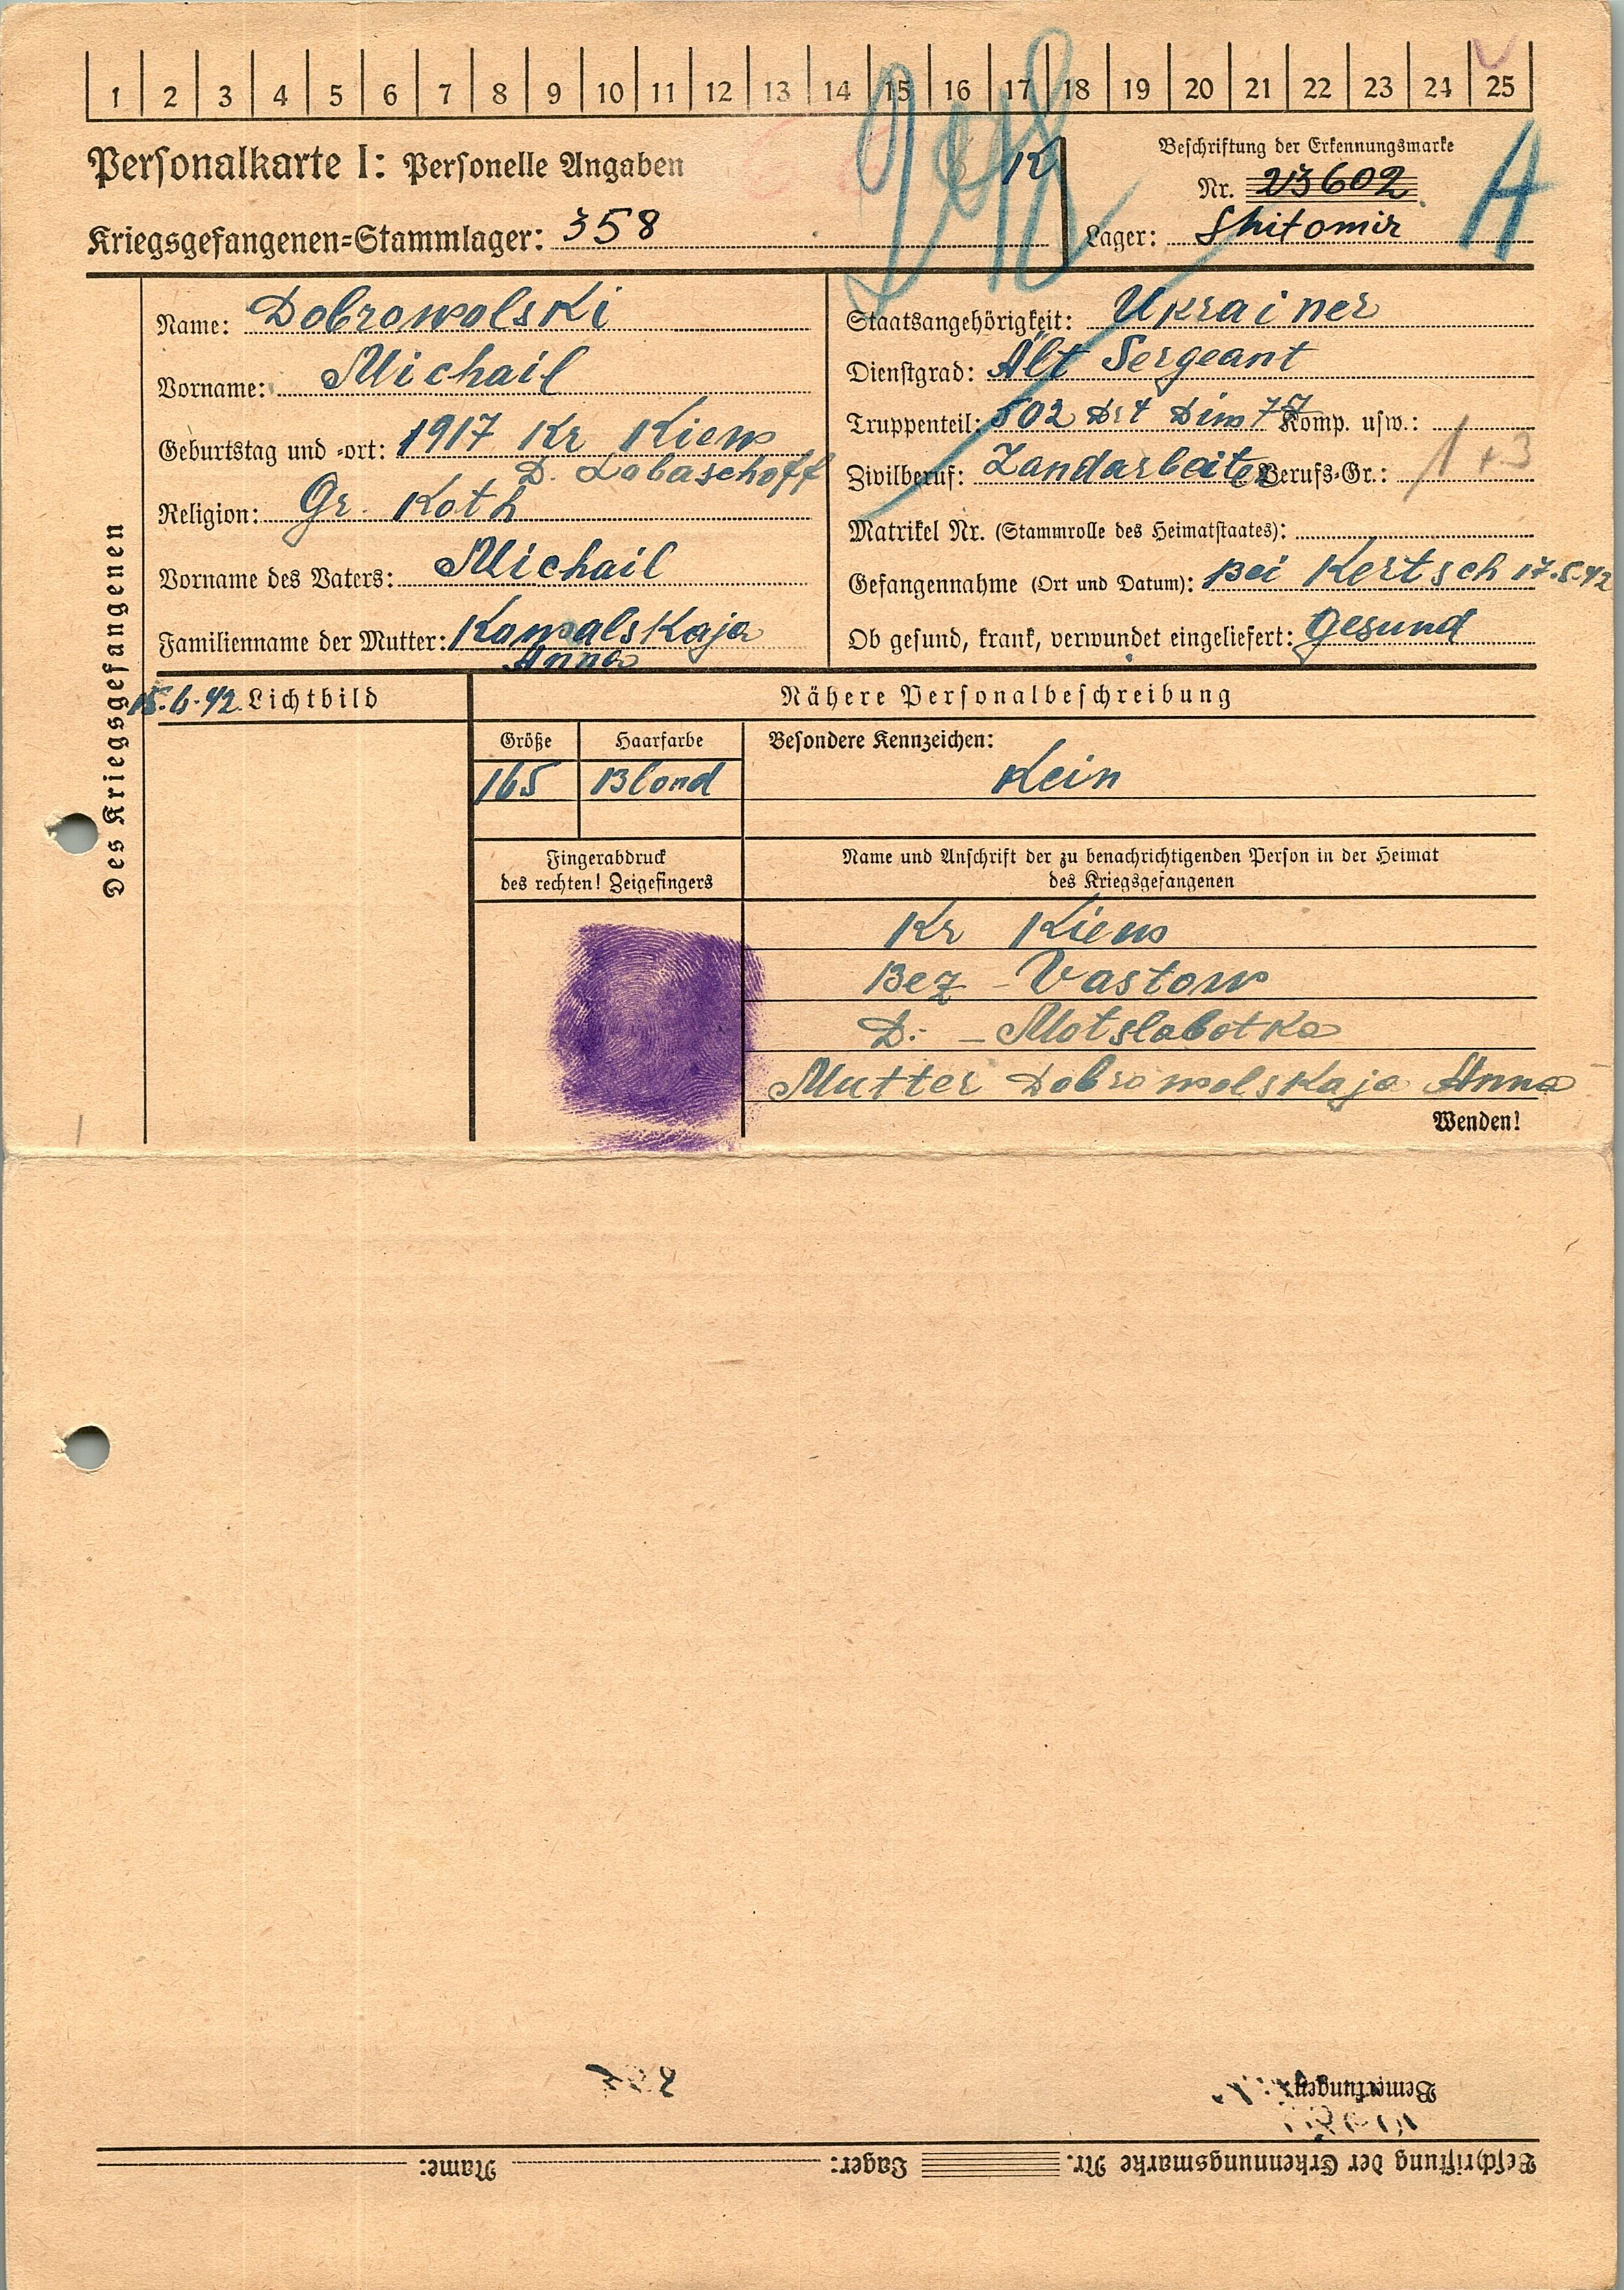 1 2 3 4 5 6 7 8 9 10 11 12 13 14 15 16 17 18 19 20 21 22 23 24 25
Personalkarte I: Personelle Angaben
K
Beschriftung der Erkennungsmarke
Nr. 23602
Kriegsgefangenen-Stammlager: 358
Lager: Shitomir
A
Des Kriegsgefangenen
Name: Dobrowolski
Vorname: Michail
Geburtstag und -ort: 1917 Kr Kiew
D. Labaschoff
Religion: Gr. Koth
Vorname des Vaters: Michail
Familienname der Mutter: Kowalskaja
Anna
Staatsangehörigkeit: Ukrainer
Dienstgrad: Alt Sergeant
Truppenteil: 502 Komp. usw.:
Zivilberuf: Landarbeiter Berufs-Gr.: 1 + 3
Matrikel Nr. (Stammrolle des Heimatstaates):
Gefangennahme (Ort und Datum): Bei Kertsch 17.5.42
Ob gesund, krank, verwundet eingeliefert: Gesund
15.6.42 Lichtbild
Nähere Personalbeschreibung
Größe Haarfarbe Besondere Kennzeichen:
165 Blond Kein
Fingerabdruck
des rechten! Zeigefingers
Name und Anschrift der zu benachrichtigenden Person in der Heimat
des Kriegsgefangenen
Kr Kiew
Bez - Vastow
D: - Motslabotka
Mutter Dobrowolskaja Anna
Wenden!
Bemerkungen:
Beschriftung der Erkennungsmarke Nr. Lager: Name: